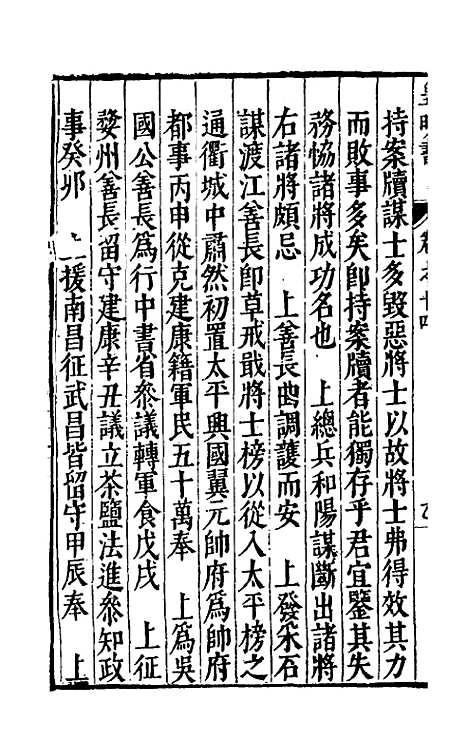 皇明書
卷之十四
持案牘謀士多毀惡將士以故將士弗得效其力
而敗事多矣即持案牘者能獨存乎君宜鑒其失
務恊諸將成功名也　上總兵和陽謀斷出諸將
右諸將頗忌　上善長曲調護而安　上發采石
謀渡江善長即草戒戢將士榜以從入太平榜之
通衢城中肅然初置太平興國翼元帥府爲帥府
都事丙申從克建康籍軍民五十萬奉　上爲吳
國公善長爲行中書省叅議轉軍食戊戌　上征
婺州善長留守建康辛丑議立茶鹽法進叅知政
事癸卯　上援南昌征武昌皆留守甲辰奉　上